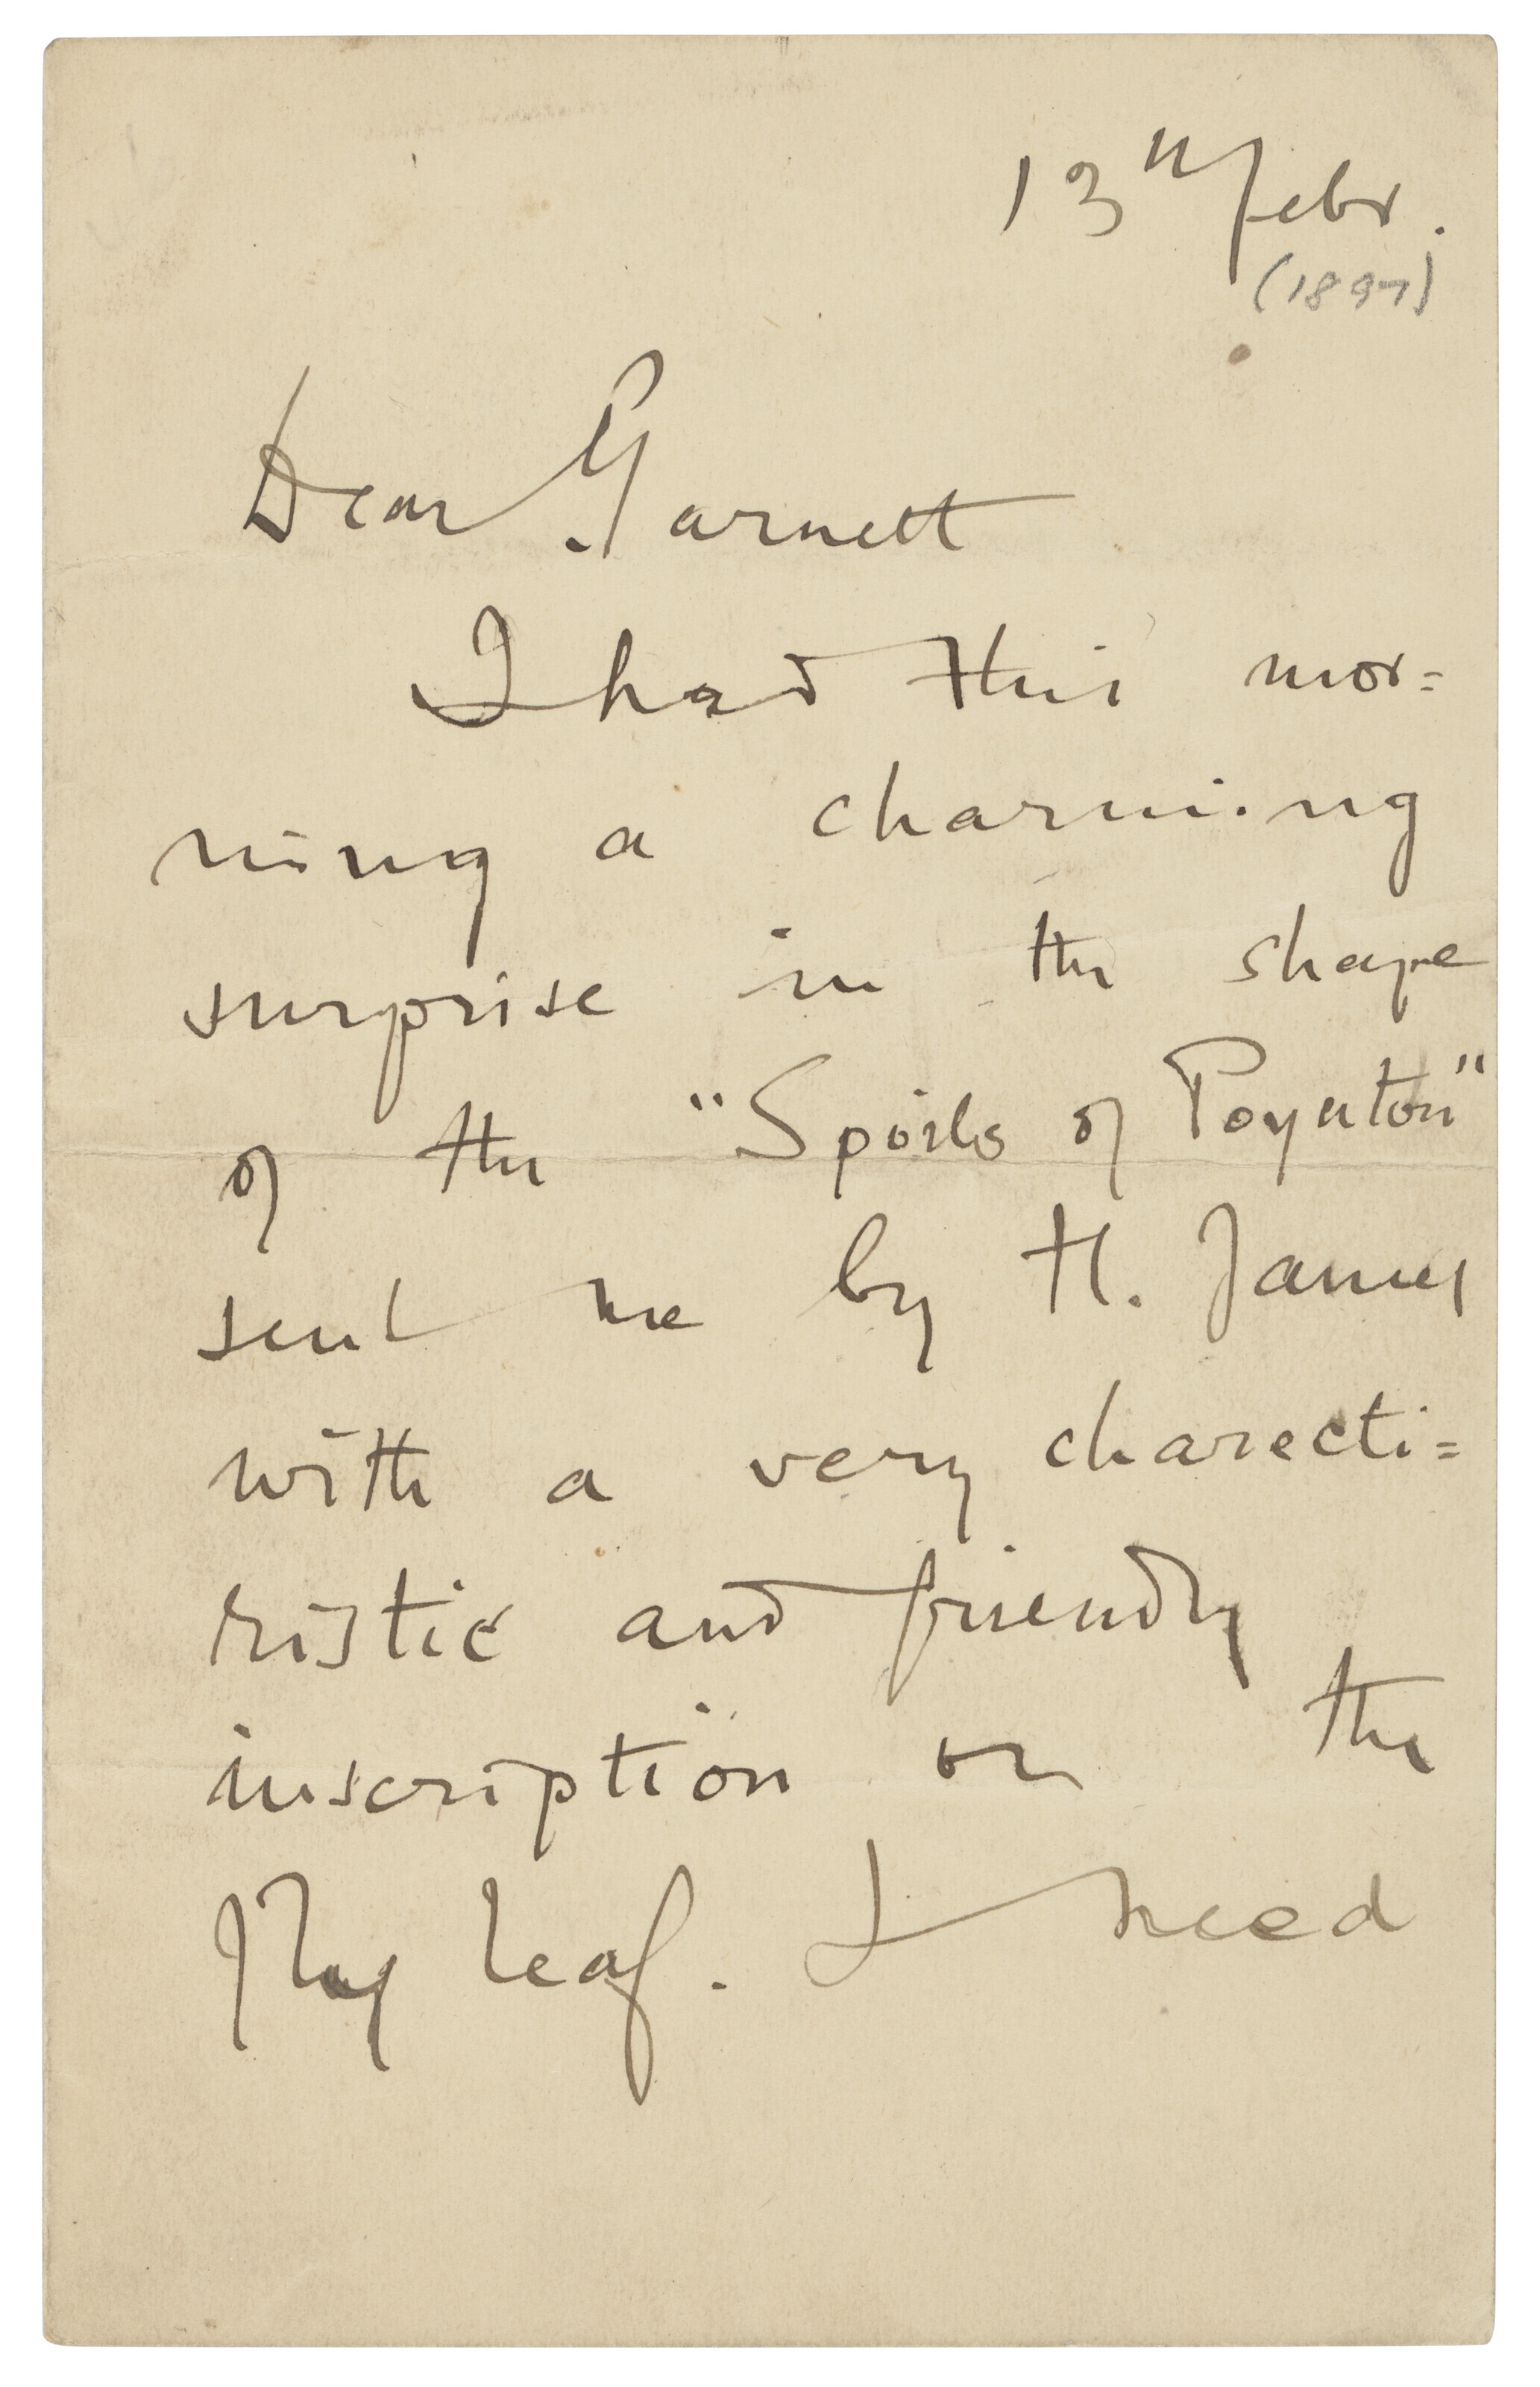 13th Febr.
(1897)
Dear Garnett
I had this mor=
ning a charming
surprise in the shape
of the "Spoils of Poynton"
sent me by H. James
with a very charecti=
ristic and friendly
inscription on the
flay leaf. I need